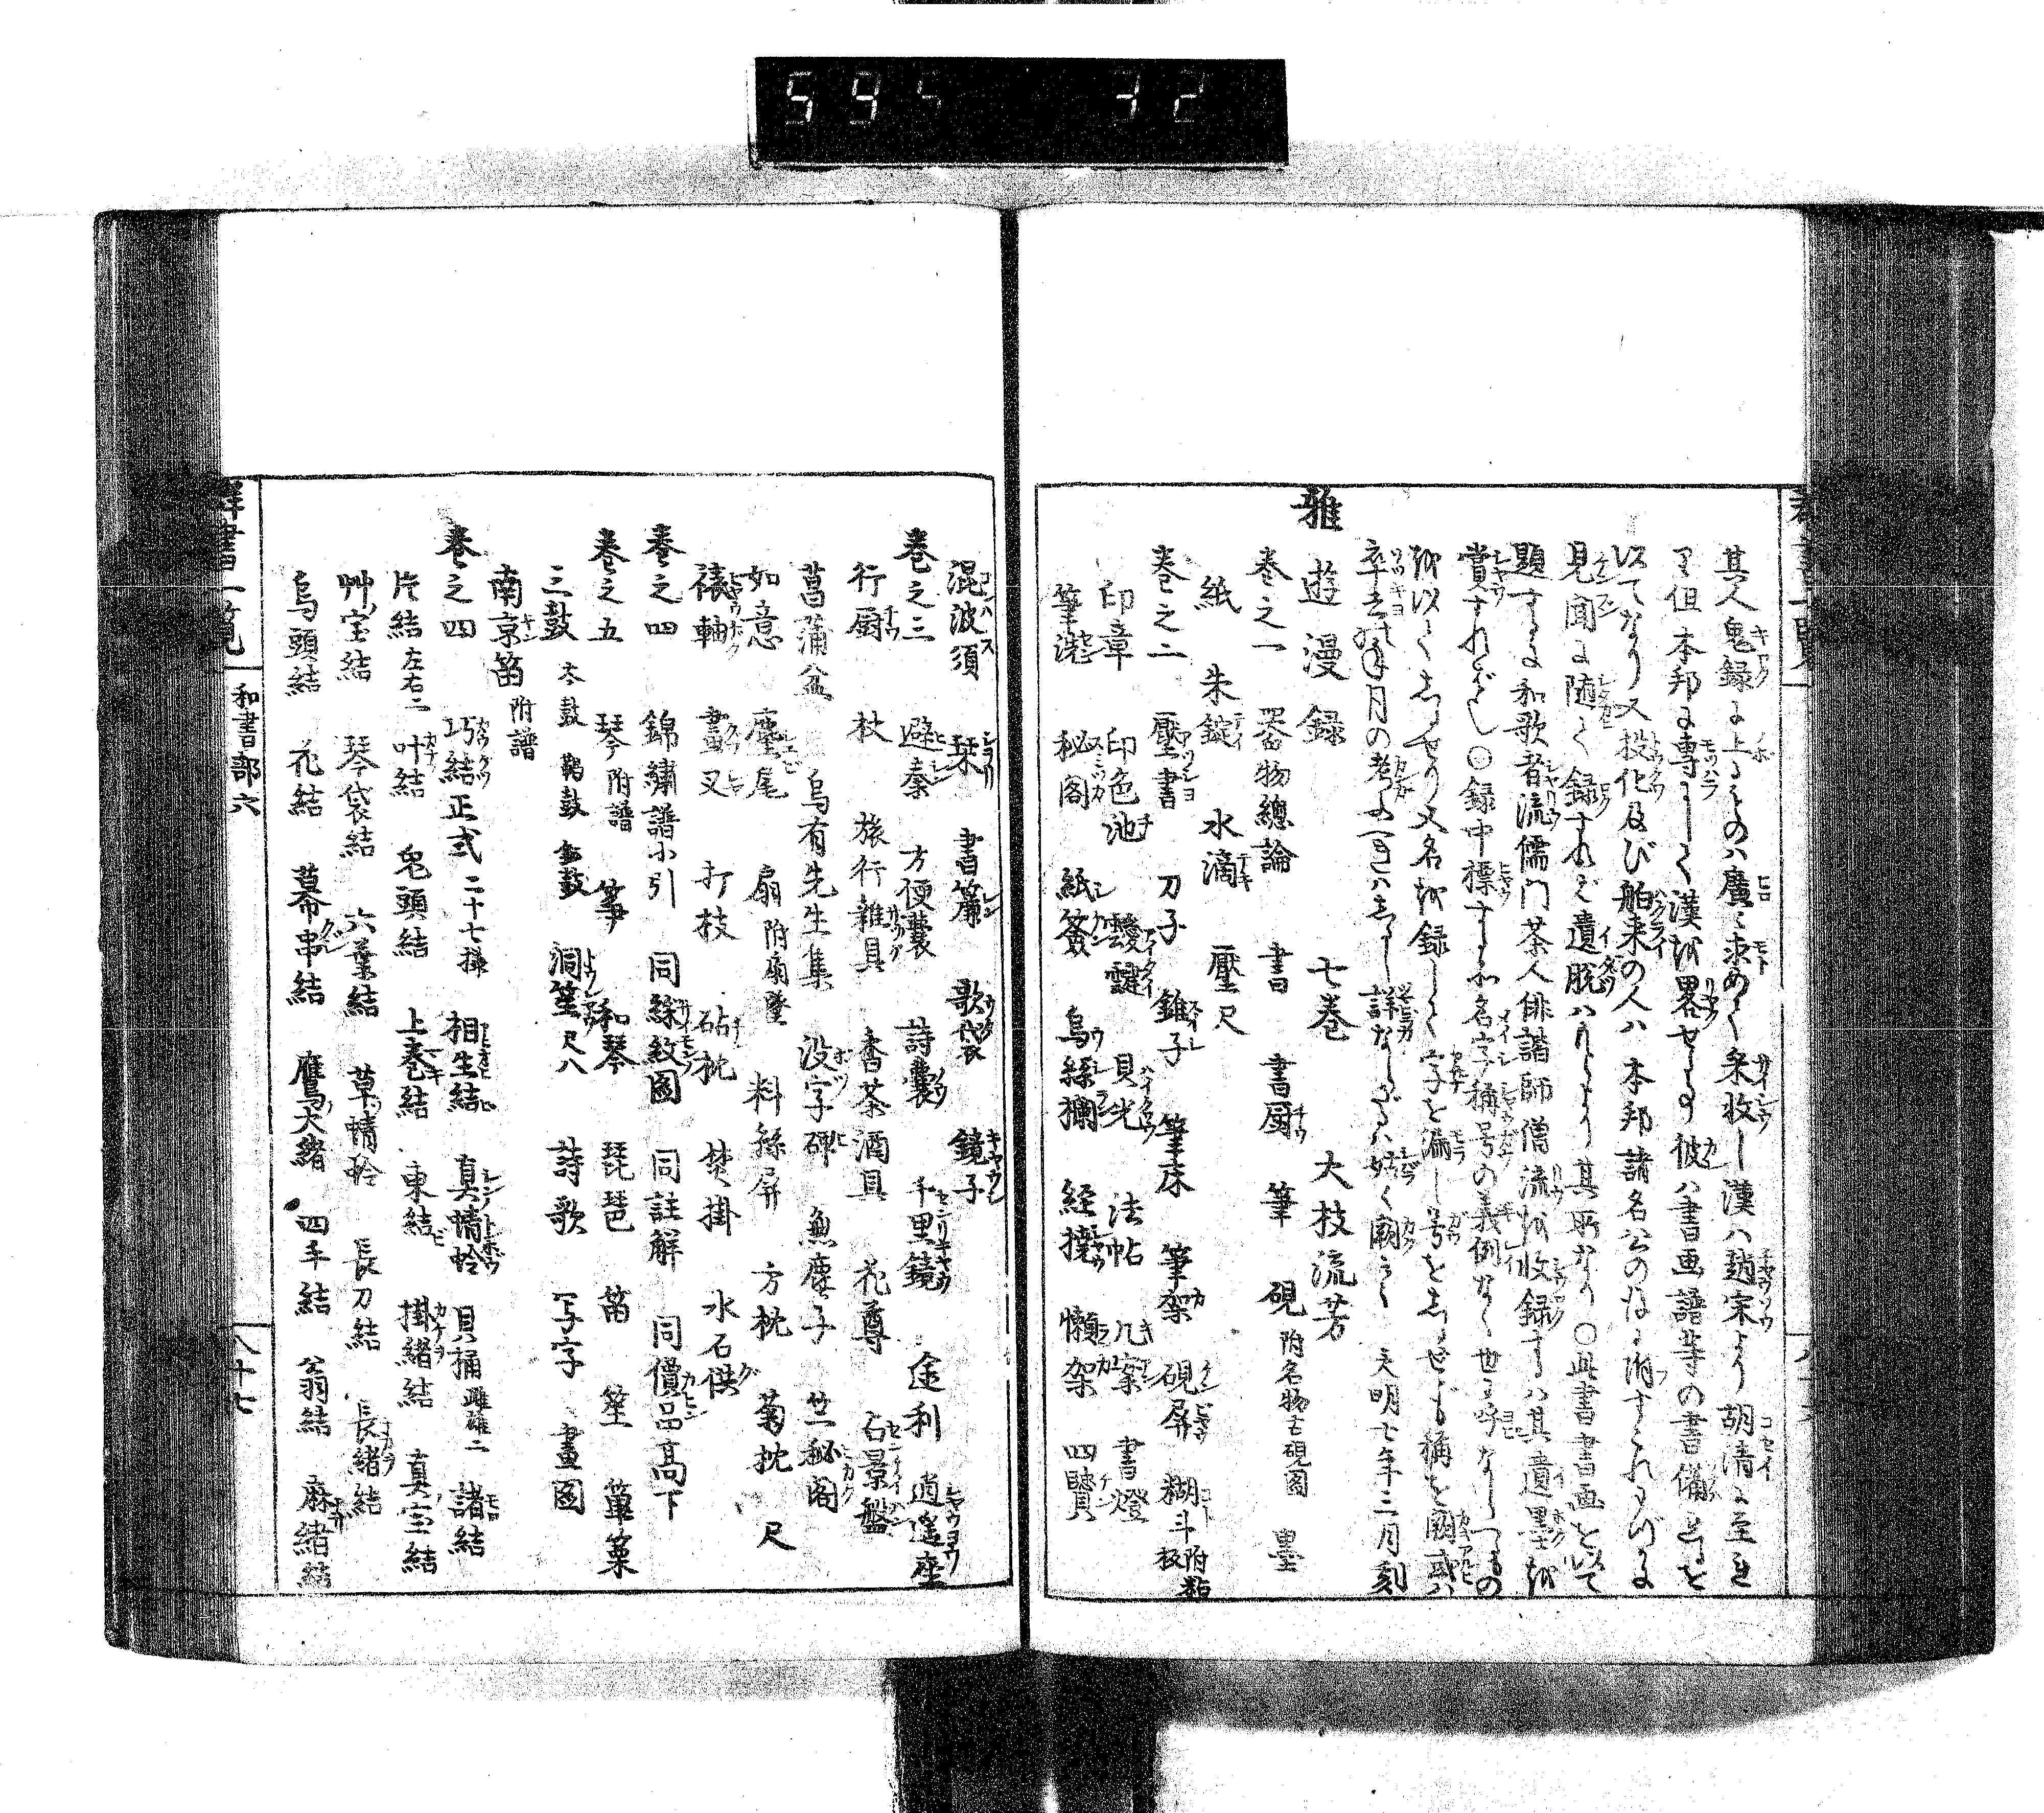 595 32
其人鬼録に上るものハ廣く求めて条收し漢ハ趙宋より胡清に至れ
り但本邦に専にして漢を畧せるハ彼ハ書画譜等の書備るを
以てなり又投化及び舶来の人ハ本邦諸名公のなに附すこれが
見聞に随て録すれバ遺脱ハ其所なり〇此書書画を以て
題するに和歌者流儒門茶人俳諧師僧流を收録するハ其遺墨を
賞すれバなり〇録中標するに名字稱号の義例なく世に呼なしつるもの
を以てしるせり又名を録して字を漏し号をしるせども稱を闕或ハ
卒去の年月の考ふべきハしるし詳ならざるハ姑く闕く 天明七年二月刻
雅遊漫録 七巻 大枝流芳
巻之一 器物總論 書 書厨 筆 硯 附名物古硯圖 墨
紙 朱錠 水滴 壓尺
巻之二 壓書 刀子 錐子 筆床 筆架 硯屏 糊斗 附粘板
印章 印色池 靉靆 貝光 法帖 几案 書燈
筆洗 秘閣 紙簽 烏絲欄 経撓 懶架 四賢
混波須 栞 書簾 歌袋 鏡子
巻之三 避秦 方便嚢 詩嚢 千里鏡 途利 逍遥座
行厨 杖 旅行雜具 香茶酒具 花尊 石景盤
菖蒲盆 烏有先生集 没字碑 魚麈子 竺秘閣
如意 麈尾 扇 附扇墜 料絲屏 方枕 菊枕 尺
裱軸 畫叉 打枝 砧枕 焚掛 水石供
巻之四 錦繍譜小引 同綵紋圖 同註解 同價品高下
巻之五 琴 附譜 箏 和琴 琵琶 笛 笙 篳篥
三鼓 太鼓 鞨鼓 鉦鼓 洞簫 尺八 詩歌 写字 畫圖
南京笛 附譜
巻之四 巧結正式 二十七様 相生結 真蜻蛉 貝桶 雌雄二 諸結
片結 左右二 叶結 兔頭結 上巻結 東結 掛緒結 真宝結
艸宝結 琴袋結 六葉結 草蜻蛉 長刀結 長緒結
烏頭結 花結 幕串結 鷹犬緒 四手結 翁結 麻緒結
群書一覧 和書部六 八十七